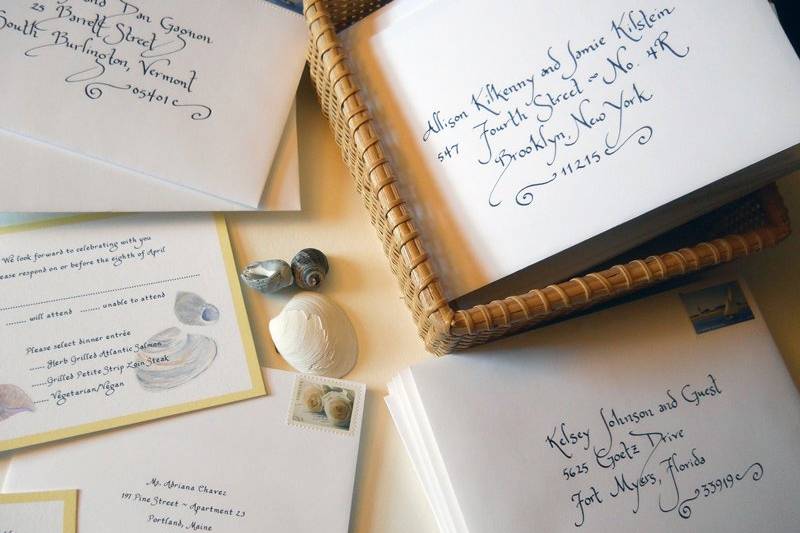 and Dan Gagnon
25 Barrett Street
South Burlington, Vermont
05401
Allison Kilkenny and Jamie Kilstein
547 Fourth Street ~ No. 4R
Brooklyn, New York
11215
We look forward to celebrating with you
Please respond on or before the eighth of April
will attend unable to attend
Please select dinner entrée
Herb Grilled Atlantic Salmon
Grilled Petite Strip Loin Steak
Vegetarian/Vegan
Ms. Adriana Chavez
197 Pine Street ~ Apartment 23
Portland, Maine
Kelsey Johnson and Guest
5625 Goetz Drive
Fort Myers, Florida
33919